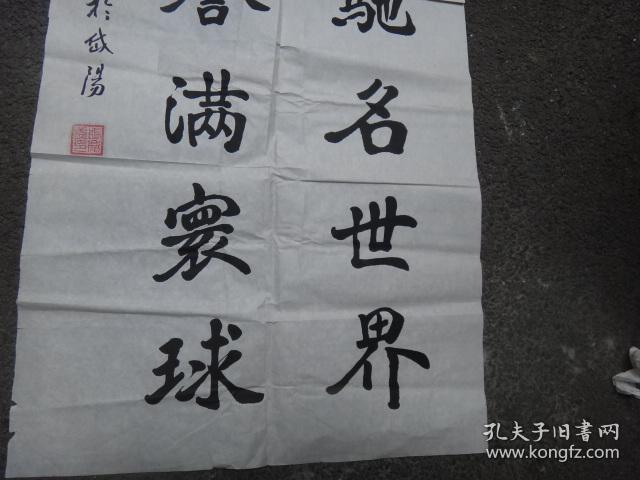 馳名世界
誉满寰球
於岱陽
孔夫子旧書网
www.kongfz.com